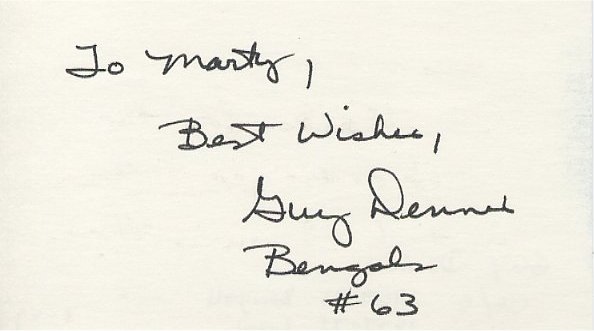 To Marty,
Best Wishes,
Guy Dennis
Bengals
#63